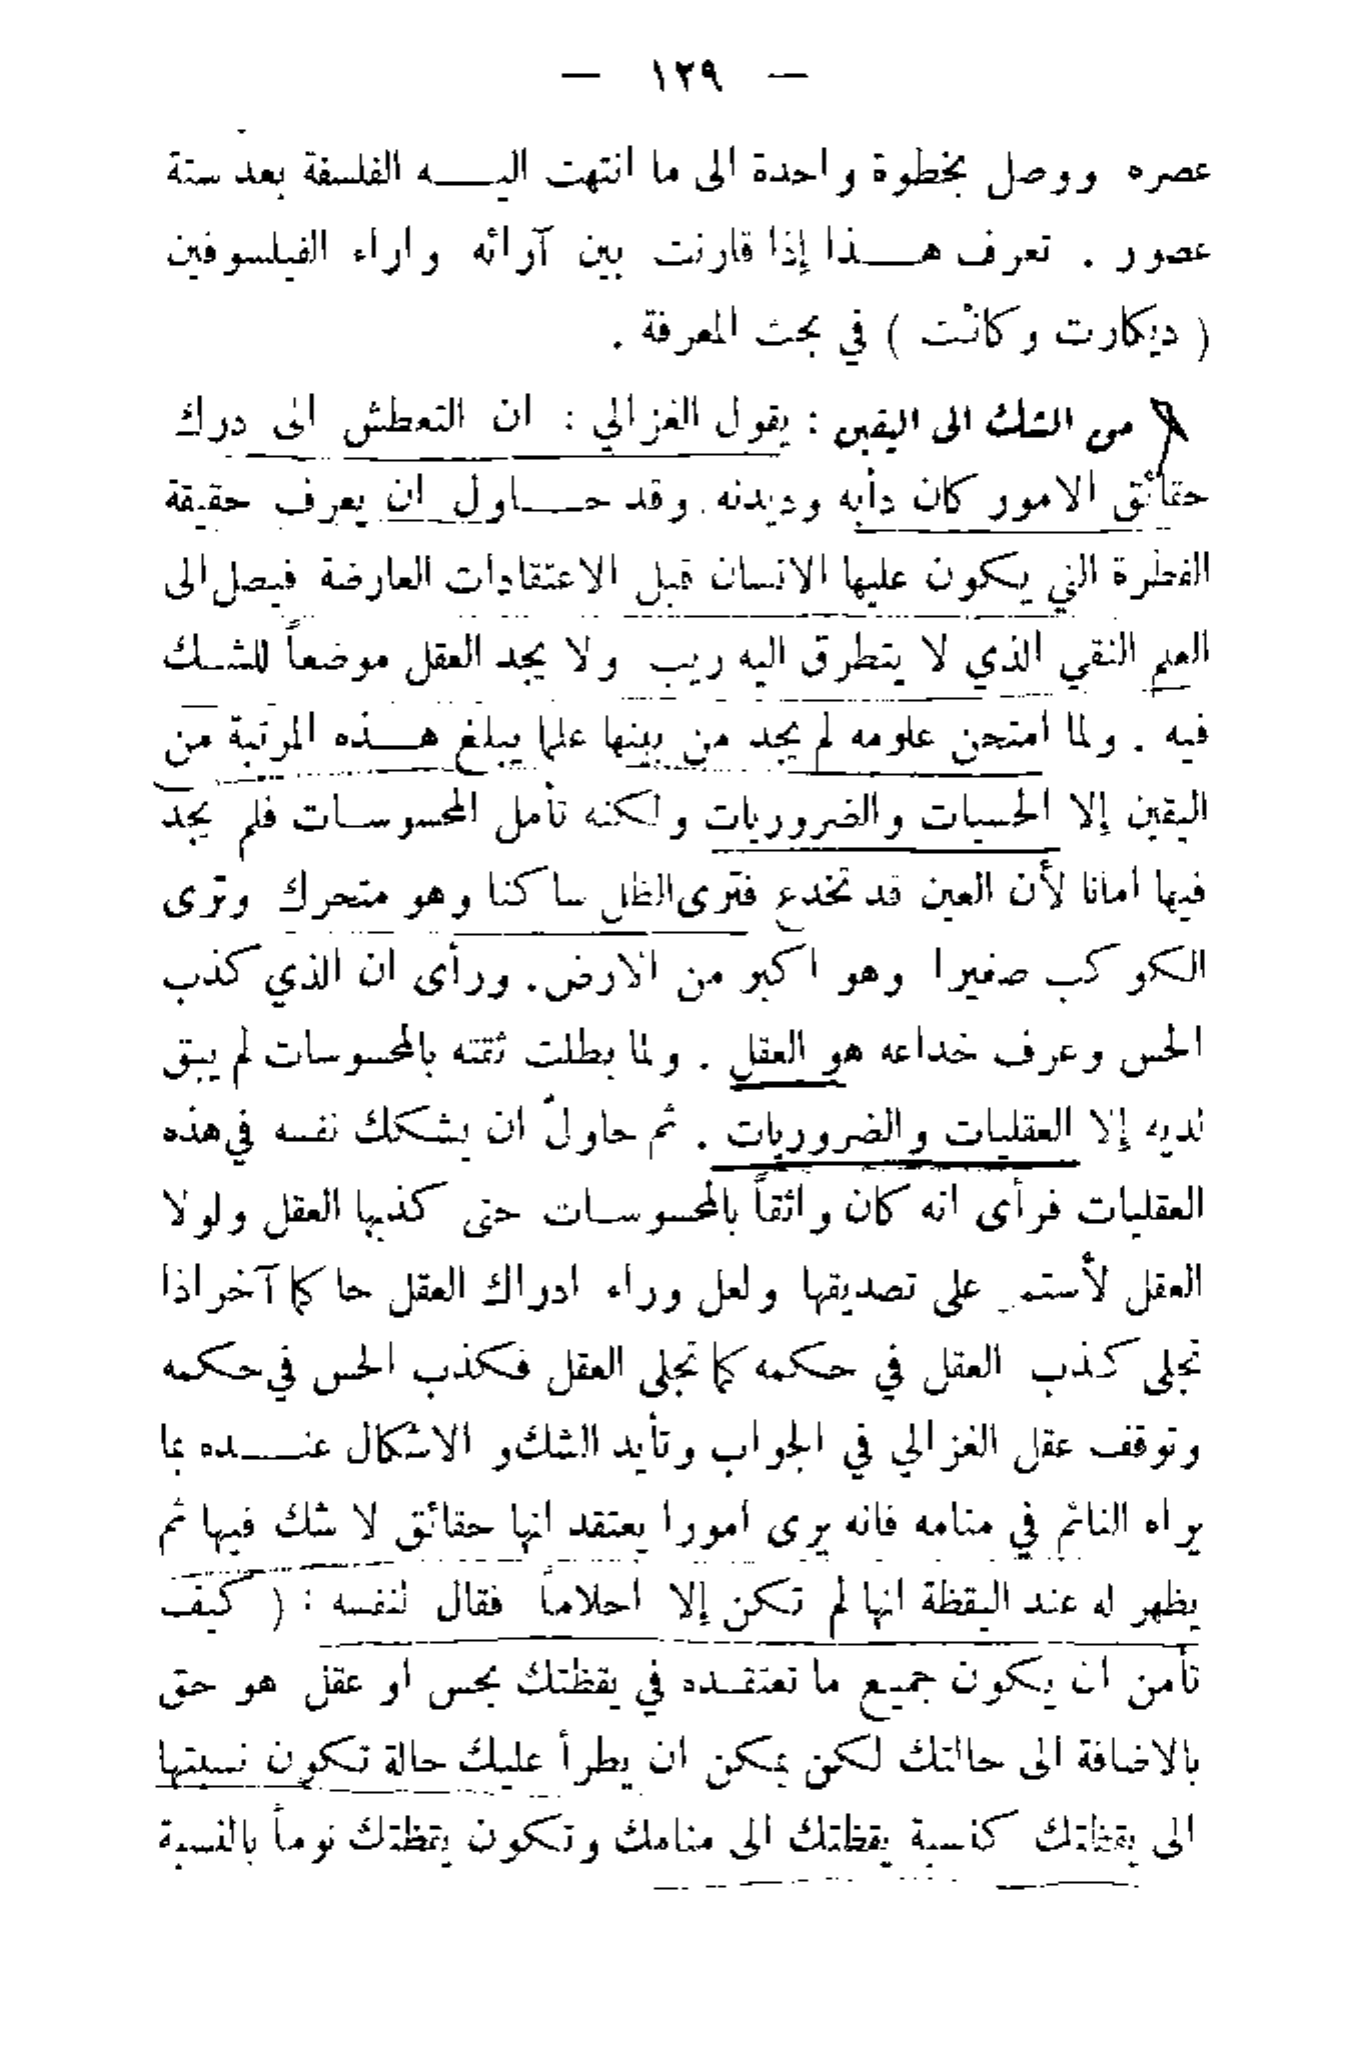 — ١٢٩ —
عصره ووصل بخطوة واحدة الى ما انتهت اليـــه الفلسفة بعد ستة
عصور . تعرف هـــذا إذا قارنت بين آرائه واراء الفيلسوفين
( ديكارت وكانت ) في بحث المعرفة .
من الشك الى اليقين : يقول الغزالي : ان التعطش الى درك
حقائق الامور كان دأبه وديدنه . وقد حـــاول ان يعرف حقيقة
الفطرة التي يكون عليها الانسان قبل الاعتقادات العارضة فيصل الى
العلم النقي الذي لا يتطرق اليه ريب ولا يجد العقل موضعاً للشـك
فيه . ولما امتحن علومه لم يجد من بينها علما يبلغ هـــذه المرتبة من
اليقين إلا الحسيات والضروريات ولكنه تأمل المحسوسـات فلم يجد
فيها امانا لأن العين قد تخدع فترى الظل ساكنا وهو متحرك وترى
الكوكب صغيرا وهو اكبر من الارض . ورأى ان الذي كذب
الحس وعرف خداعه هو العقل . ولما بطلت ثقته بالمحسوسات لم يبق
لديه إلا العقليات والضروريات . ثم حاول ان يشكك نفسه في هذه
العقليات فرأى انه كان واثقاً بالمحسوسـات حتى كذبها العقل ولولا
العقل لأستمر على تصديقها ولعل وراء ادراك العقل حاكما آخر اذا
تجلى كـذب العقل في حكمه كما تجلى العقل فكذب الحس في حكمه
وتوقف عقل الغزالي في الجواب وتأيد الشك و الاشكال عنـــده بما
يراه النائم في منامه فانه يرى امورا يعتقد انها حقائق لا شك فيها ثم
يظهر له عند اليقظة انها لم تكن إلا احلاماً فقال لنفسه : ( كيف
تأمن ان يكون جميع ما تعتقـده في يقظتك بحس او عقل هو حق
بالاضافة الى حالتك لكن يمكن ان يطرأ عليك حالة تكون نسبتها
الى يقظتك كنسبة يقظتك الى منامك وتكون يقظتك نوماً بالنسبة